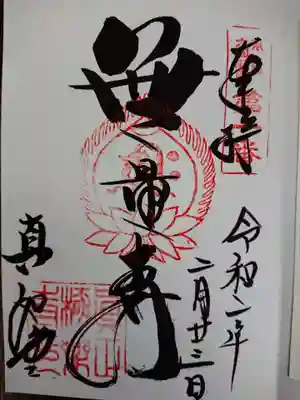 奉拝
令和二年
二月廿三日
無量寿
真如堂